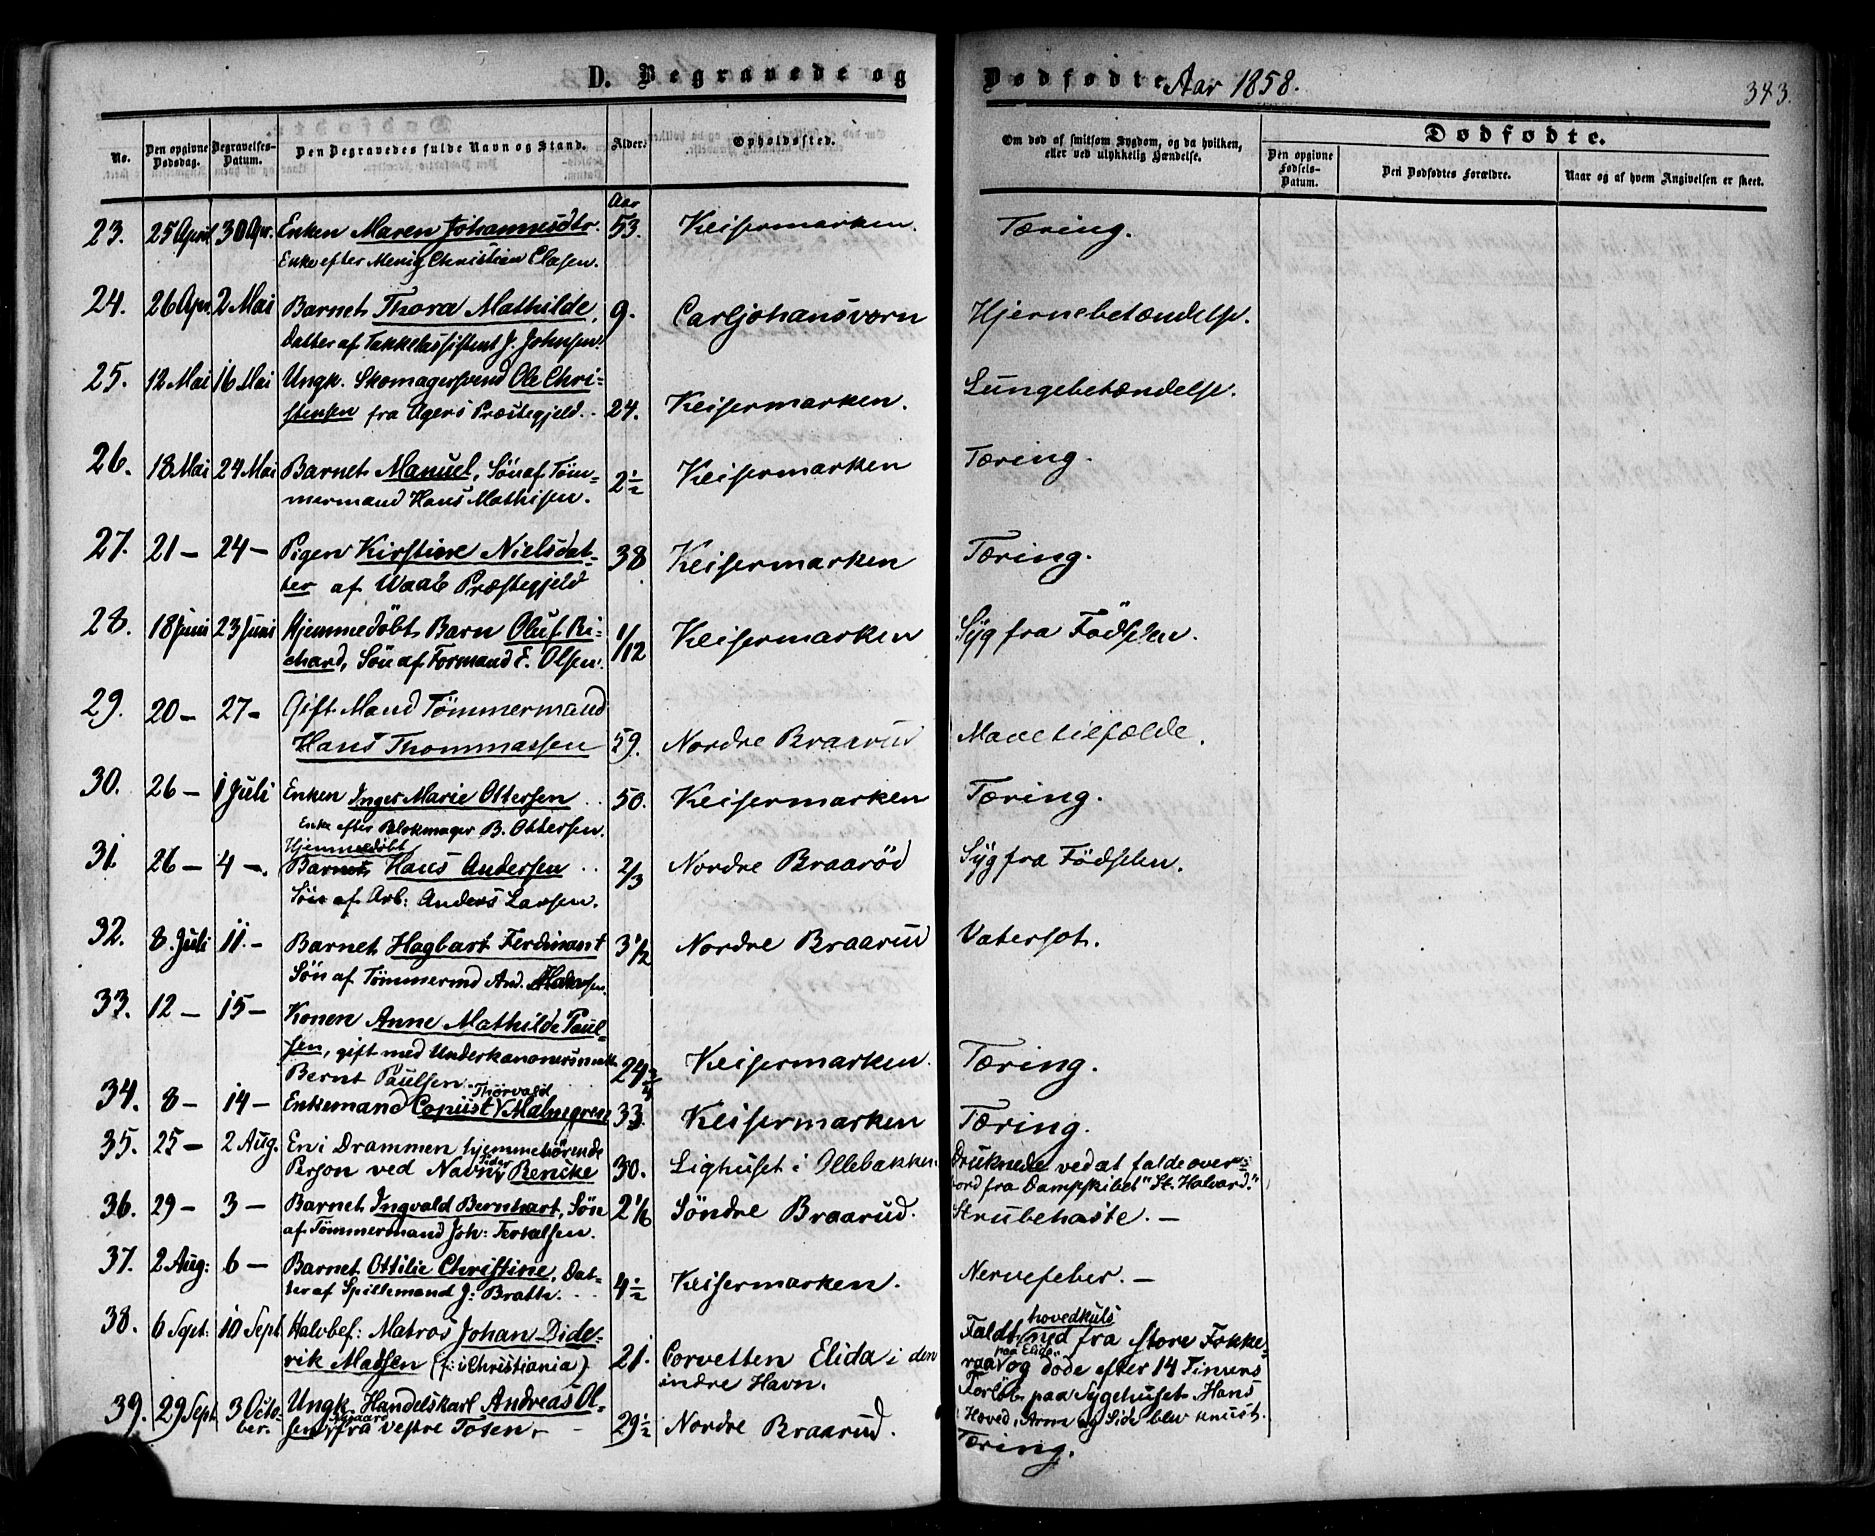 D. Begravede og Dødfødte Aar 1858. 343.
No. Den opgivne Dødsdag. Begravelses-Datum. Den Begravedes fulde Navn og Stand. Alder. Opholdssted. Om død af smitsom Sygdom, og da hvilken, eller ved ulykkelig Hændelse. Dødfødte.
Den opgivne Fødsels-Datum. Den Dødfødtes Forældre. Naar og af hvem Angivelsen er skeet.
Aar
23. 25 April 30 Apr. Enken Maren Johannesdtr. 53. Keisermarken. Tæring.
Enke efter Menig Christian Clasen.
24. 26 Apr. 2 Mai Barnet Thora Mathilde, 9. Carljohansværn Hjernebetændelse.
Datter af Takkelassistent J. Johnsen.
25. 12 Mai 16 Mai Ungk. Skomagersvend Ole Chri- Lungebetændelse.
stensen fra Agers Præstegjeld. 24. Keisermarken.
26. 18 Mai 24 Mai Barnet Manuel, Søn af Tøm- 2½ Keisermarken Tæring.
mermand Hans Mathisen.
27. 21 — 24 — Pigen Kirstine Nielsdat- 38 Keisermarken Tæring.
ter af Waale Præstegjeld
28. 18 Juni 23 Juni Hjemmedøbt Barn Oluf Ri- 1/12 Keisermarken Syg fra Fødselen.
chard, Søn af Formand E. Olsen.
29. 20 — 27 — Gift Mand Tømmermand
Hans Thommassen 59. Nordre Braarud Mavetilfælde.
30. 26 — 1 Juli Enken Inger Marie Ottersen 50. Keisermarken Tæring.
Enke efter Blokmager B. Ottersen.
Hjemmedøbt
31. 26 — 4 —. Barnet Hans Andersen 2/3 Nordre Braarød Syg fra Fødselen.
Søn af Arb: Anders Larsen.
32. 8. Juli 11. — Barnet Hagbart Ferdinant 3½ Nordre Braarud Vatersot.
Søn af Tømmermd And.
33. 12 — 15 — Konen Anne Mathilde Paul-
sen, gift med Underkanoners
Bernt Paulsen. 24 Keisermarken. Tæring.
Thorvald
34. 8 — 14 — Enkemand Copiist Malmegren 33. Keisermarken Tæring.
35. 25 — 2 Aug. En i Drammen hjemmehørende
Person ved Navn Peder Bencke 30. Lighuset i Ollebakken. Druknede ved at falde over
bord fra Dampskibet "St. Halvard."
36. 29 — 3 — Barnet Ingvald Bernhart, Søn 2 1/6 Søndre Braarud. Strubehoste. —
af Tømmermand Joh: Tervalsen.
37. 2 Aug: 6 — Barnet Ottilie Christine, Dat- 4½ Keisermarken. Nervefeber. —
ter af Spillemand J: Brath.
38. 6 Sept: 10 Sept Halvbef: Matros Johan Dide- Faldt hovedkuls ned fra store Fokke-
rik Madsen (f: i Christiania) 21. Corvetten Elida i den indre Havn. raa paa "Elida" og døde efter 14 Timers
Forløb paa Sygehuset. Hans
Hoved, Arm og Side blev knust.
39. 29 Sept 3 Octo-ber. Ungk. Handelskarl Andreas Ol-
sen fra Vestre Tosen. 29½ Nordre Braarud. Tæring.